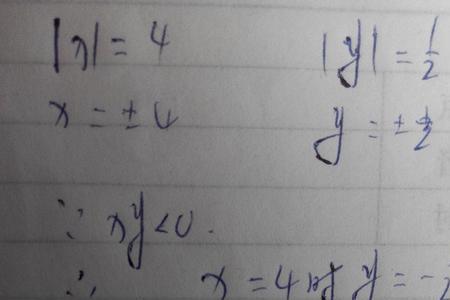 |x| = 4 |y| = 1/2
x = ±4 y = ±1/2
∵ xy<0.
∴ x = 4时 y = -